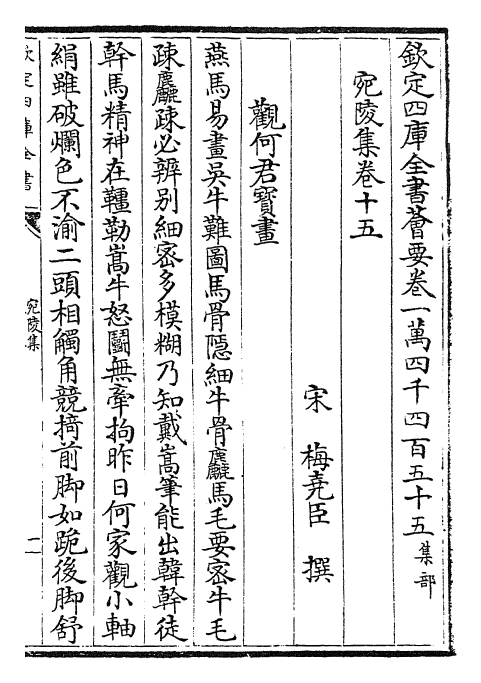 欽定四庫全書薈要卷一萬四千四百五十五集部
宛陵集卷十五
宋 梅堯臣 撰
觀何君寶畫
燕馬易畫吳牛難圖馬骨隱細牛骨麤馬毛要密牛毛
疎麤疎必辨别細密多模糊乃知戴嵩筆能出韓幹徒
幹馬精神在韁勒嵩牛怒鬬無牽拘昨日何家觀小軸
絹雖破爛色不渝二頭相觸角競掎前脚如跪後脚舒
欽定四庫全書
宛陵集
一